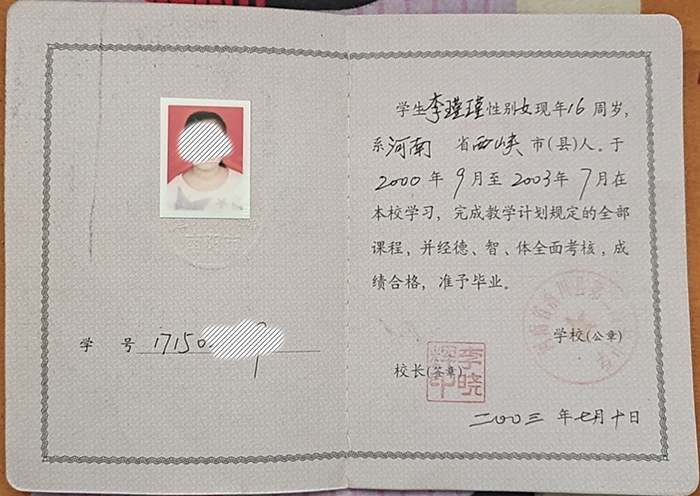 学号 17150
学生李瑾瑾性别女现年16周岁，
系河南 省西峡市(县)人。于
2000年9月至2003年7月在
本校学习，完成教学计划规定的全部
课程，并经德、智、体全面考核，成
绩合格，准予毕业。
学校(公章)
校长(签章)
李晓
辉印
二00三年七月十日